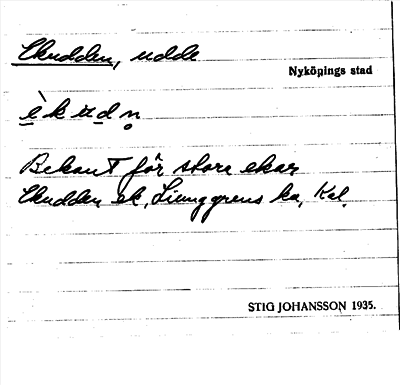 Ekudden, udde
Nyköpings stad
è k u d n
Bekant för stora ekar
Ekudden ek, Ljunggrens ka, Kal.
STIG JOHANSSON 1935.